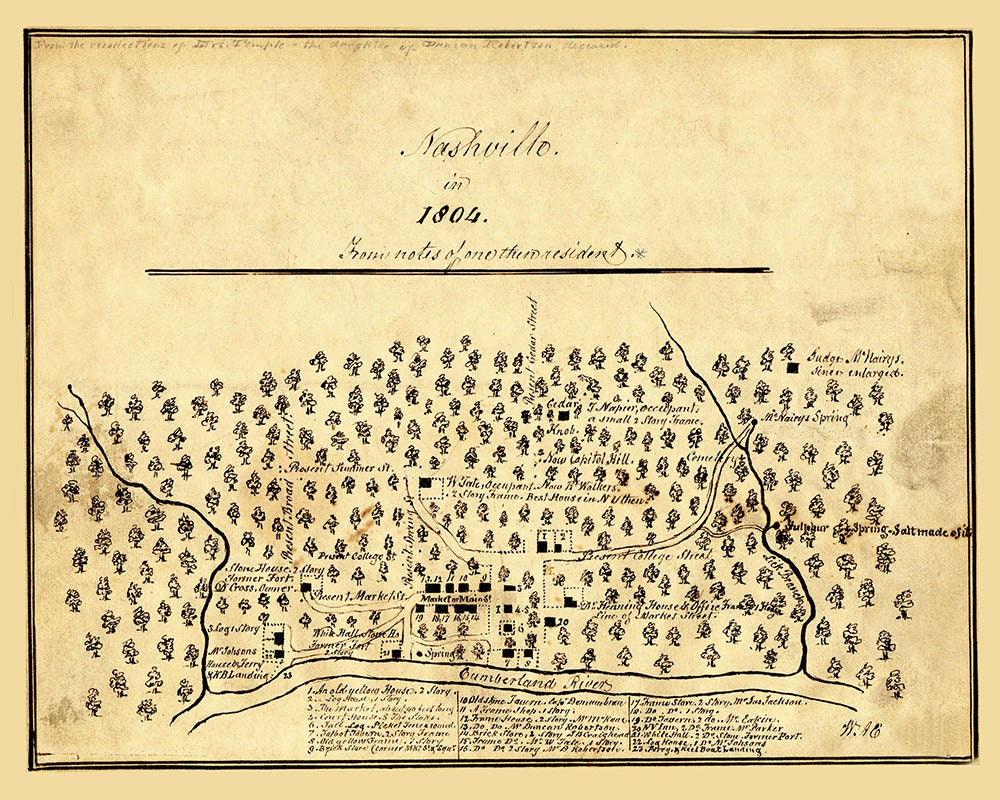 From the recollections of Mrs. Temple - the daughter of Duncan Robertson, deceased.
Nashville.
in
1804.
From notes of one then resident.*
Present Cedar Street
Judge McNairys.
Since enlarged.
Cedar
Knob.
J. Napier, Occupant.
a small 2 Story Frame.
McNairys Spring
Now Capitol Hill.
Cemetery
Present Summer St.
Present Broad Street
W Tate, Occupant. Now R Walkers.
2 Story Frame. Best House in N. then.
Sulphur Spring-Salt made of it
Present Spring St
Present College St
Present College Street
Lick Branch
Stone House. 2 Story
Former Fort.
Dr Cross. Owner.
Present Market St.
12 11 10 9
Market or Main St
19 18 17 16 15 14
Dr Hening House & Office Frame
line of 2 Market Street.
1
4
5
6
20
3 Log 1 Story
White Hall. Stone Ho
Former Fort
2 Story
21
Spring
7
8
Mr Johsons
House & Ferry
& K.B. Landing
23
Cumberland River
1. An old yellow House. 2 Story
2. Log House 1 Story
3. The Market, about 40 feet long
4. Court House. 5 The Stoks.
6. Jail. Log. Picket Fence round.
7. Talbot Tavern. 2 Story Frame
8. Old yellow Frame. 1 Story
9. Brick Store (corner Mkt St & Sqr)
10 Old Stone Tavern
11. A Frame Shop 1 Story.
12. Frame House. 2 Story.
13. Do. Do. Mr Duncan Robertson
14. Brick Store, 2 Story
15. Frame Do. Mr W Tate. 1 Story.
16. Do Do 2 Story
17. Frame Store. 2 Story. Mr Jas Jackson.
18. Do. Do. 1 Story.
19. Do Tavern. 2 do. Mr Eakin.
20. Do Frame. Mr Parker
21. White Hall. 2 Do Stone. Former Fort.
22. Log House. 1 Do Mr Johsons
23. Ferry, & Keel Boat Landing